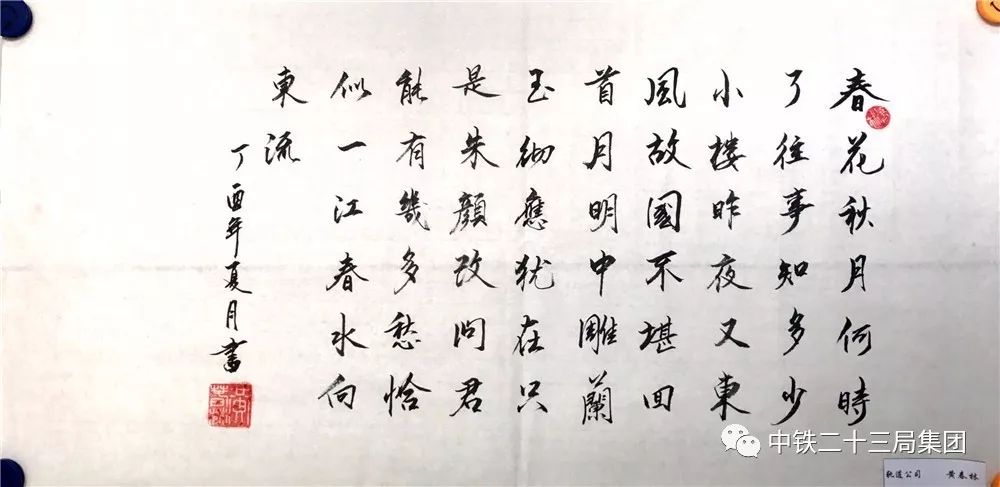 春花秋月何時
了往事知多少
小樓昨夜又東
風故國不堪回
首月明中雕蘭
玉砌應犹在只
是朱顔改问君
能有幾多愁恰
似一江春水向
東流
丁酉年夏月書
中铁二十三局集团
轨道公司 黄春林